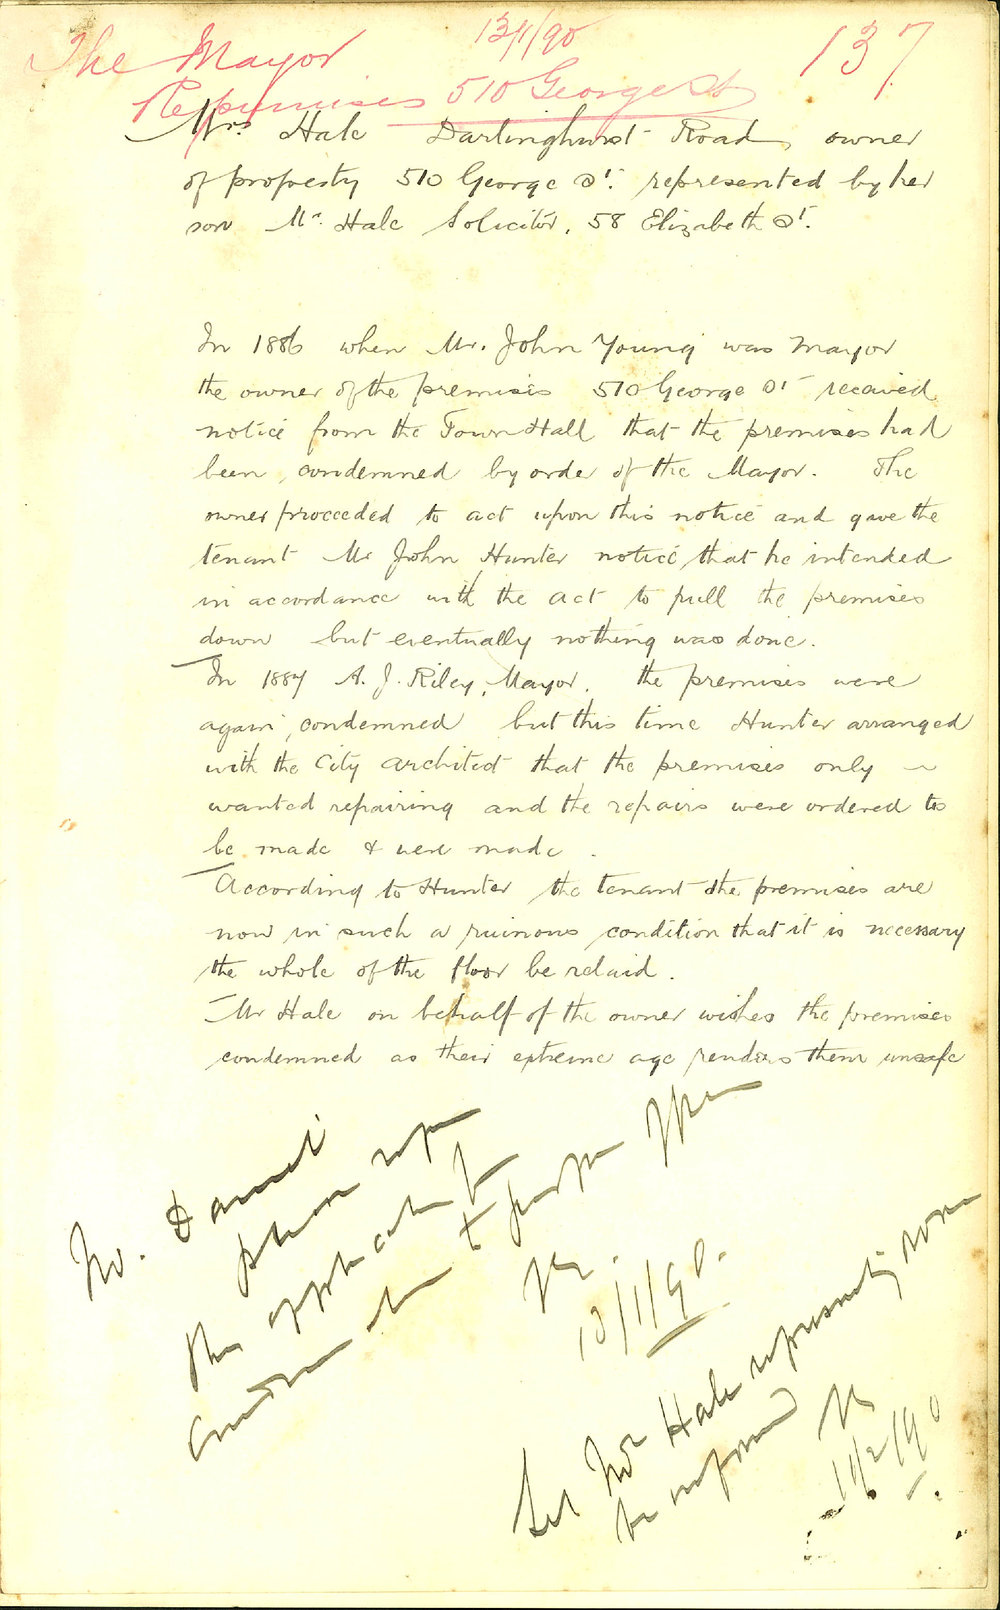 The Mayor 13/1/90 137
Re premises 510 George St
Mrs Hale Darlinghurst Road owner
of property 510 George St. represented by her
son Mr. Hale Solicitor, 58 Elizabeth St.
In 1886 when Mr. John Young was Mayor
the owner of the premises 510 George St received
notice from the Town Hall that the premises had
been condemned by order of the Mayor. The
owner proceeded to act upon this notice and gave the
tenant Mr John Hunter notice that he intended
in accordance with the act to pull the premises
down but eventually nothing was done.
In 1887 A. J. Riley, Mayor, the premises were
again condemned but this time Hunter arranged
with the City Architect that the premises only
wanted repairing and the repairs were ordered to
be made & were made.
According to Hunter the tenant the premises are
now in such a ruinous condition that it is necessary
the whole of the floor be relaid.
Mr Hale on behalf of the owner wishes the premises
condemned as their extreme age renders them unsafe
Mr. Daniel
please
this application
to
13/1/90.
Let Mr Hale representing
be informed
/2/90